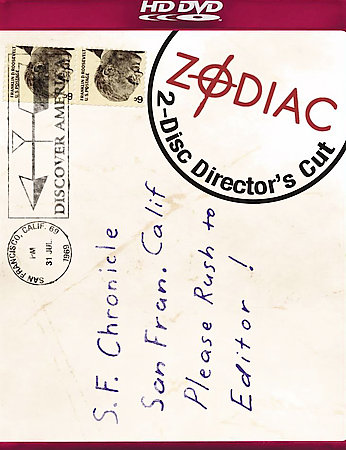 HD DVD
ZODIAC
2-Disc Director's Cut
FRANKLIN D. ROOSEVELT
U.S. POSTAGE
6¢
FRANKLIN D. ROOSEVELT
U.S. POSTAGE
6¢
DISCOVER AMERICA
SAN FRANCISCO, CALIF. 69
PM
31 JUL
1969
S.F. Chronicle
San Fran. Calif
Please Rush to
Editor!